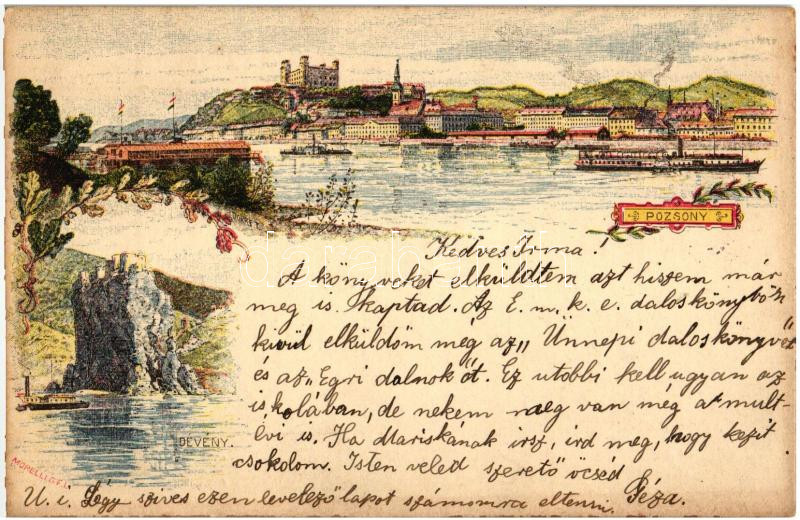 POZSONY
Kedves Irma!
A könyveket elküldtem azt hiszem már
meg is kaptad. Az E. m. k. e. daloskönyvön
kívül elküldöm még az „Ünnepi daloskönyvet"
és az „Egri dalnokot. Ez utobbi kell ugyan az
iskolában, de nekem meg van még a mult-
évi is. Ha Mariskának irsz, ird meg, hogy kezit
csokolom. Isten veled szerető öcséd
Géza.
U. i. Légy szives ezen levelező lapot számomra eltenni.
DÉVÉNY.
MORELLI G.F.L.
darabanth